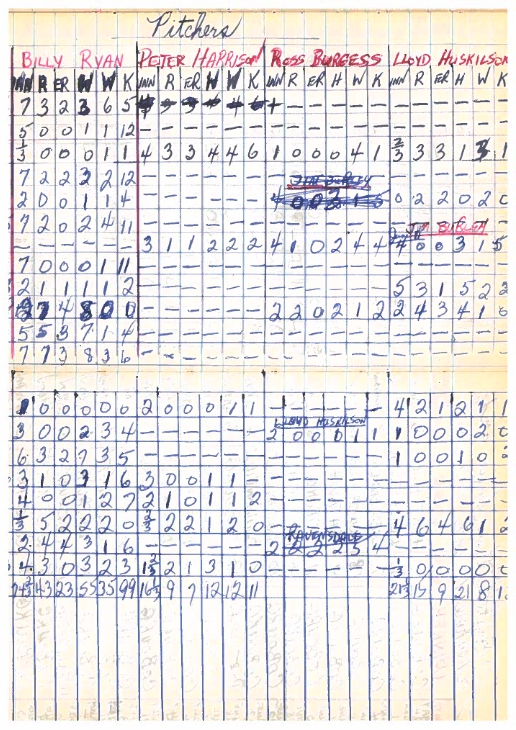 Pitchers
BILLY RYAN PETER HARRISON ROSS BURGESS LLOYD HUSKILSON
INN R ER W W K INN R ER H W K INN R ER H W K INN R ER H W K
7 3 2 3 6 5
5 0 0 1 1 12 - - - - - - - - - - - - - - - - - -
1/3 0 0 0 1 1 4 3 3 4 4 6 1 0 0 0 4 1 2/3 3 3 1 3 1
7 2 2 2 2 12 - - - - - -
2 0 0 1 1 4 - - - - - - 0 2 2 0 2 0
JIM BURLEA
7 2 0 2 4 11 - - - - - -
- - - - - - 3 1 1 2 2 2 4 1 0 2 4 4 4 0 0 3 1 5
7 0 0 0 1 11 - - - - - - - - - - - -
2 1 1 1 1 2 - - - - - - - - - - - - 5 3 1 5 2 2
- - - - - - 2 2 0 2 1 2 2 4 3 4 1 0
5 5 3 7 1 4 - - - - - - - - - - - - - - - - - -
7 7 3 8 3 6 - - - - - - - - - - - - - - - - - -
1 0 0 0 0 0 2 0 0 0 1 1 - - - - - - 4 2 1 2 1 1
LLOYD HUSKILSON
3 0 0 2 3 4 - - - - - - 2 0 0 1 1 1 0 0 0 2
6 3 2 7 3 5 - - - - - - - - - - - - 1 0 0 1 0
3 1 0 3 1 6 3 0 0 1 1 - - - - - - -
4 0 0 1 2 7 2 1 0 1 1 2 - - - - - -
1/3 5 2 2 2 0 2/3 2 2 1 2 0 - - - - - - 4 6 4 6 1 2
RAVENSDALE
2 4 4 3 1 6 - - - - - - 2 2 2 2 5 4 - - - - - -
4 3 0 3 2 3 1 2/3 2 1 3 1 0 - - - - - - 1/3 0 0 0 0
43 23 55 35 99 16 1/3 9 7 12 12 11 21 1/3 15 9 21 8